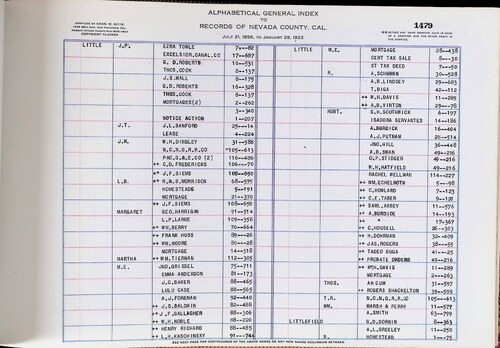 ALPHABETICAL GENERAL INDEX
TO
RECORDS OF NEVADA COUNTY, CAL.
JULY 21, 1856, TO JANUARY 26, 1922
1479
COPYRIGHT CLAIMED
LITTLE J.F. EZRA TONLE 7—82
EXCELSIOR.CANAL.CO 17—687
G. D. ROBERTS 16—531
THOS.COOK 8—137
J.S.WALL 8—175
G.D.ROBERTS 16—328
THOS.COOK 8—137
MORTGAGES(2) 2—262
3—340
NOTICE ACTION 1—207
J.T. J.L.SANFORD 25—14
LEASE 4—224
J.W. W.H.DINGLEY 31—588
N.C.N.G.R.R.CO *105—613
PAC.G.&E.CO (2) 116—406
++ C.D. FREDERICKS 106—70
J.F SIEMS 108—650
L.B. R.& S.MORRISON 68—575
HOMESTEADS 5—191
MORTGAGE 21—370
++ J.F SIEMS 108—650
MARGARET GEO.HARRIGAN 91—514
L.P.LARGE 109—356
++ WM.BERRY 70—664
++ FRANK HUSS 89—28
++ WM.MOORE 89—28
MORTGAGE 14—518
MARTHA ++ WM.TIERNAN 112—305
M.E. JNO.GRISSEL 75—711
EMMA ANDERSON 81—173
J.C.BAKER 88—465
LULU CASE 88—565
A.J.FOREMAN 92—440
++ J.S.BALDWIN 92—488
++ J.F.GALLAGHER 88—306
++ W.H.NOBLE 88—220
++ HENRY RICHARD 88—485
++ L.H.KASCHINSKY 91—744
LITTLE M.E. MORTGAGE 28—438
CERT TAX SALE 8—30
ST TAX DEED 7—50
R. A.SCHWMAN 30—528
A.B.LINDSEY 29—683
T.BIGA 42—112
++ W.H.DAVIS 11—289
++ A.B.VINTON 29—78
ROBT. S.H.SOUTHWICK 6—197
ISADORA SERVANTES 14—186
A.BURDICK 16—404
A.J.PUTNAM 28—514
JNO.HILL 36—448
A.B.SWAN 49—216
G.P.STIDGER 49—216
W.H.HATFIELD 49—216
RACHEL WELLMAN 114—227
++ WM.ECHELROTH 5—98
++ C.HOWLAND 7—123
++ C.E.TABER 9—120
++ SAML.ABBEY 11—576
++ A.BURDICK 14—193
++ " 17—367
++ C.HOUSELL 26—303
++ H.DOHRMAN 32—409
++ JAS.ROGERS 38—55
++ TADEO RUGA 41—25
++ PROBATE ORDERS 49—216
++ WM.DAVIS 11—289
MORTGAGE 2—263
THOS. AH CUM 31—597
++ ROGERS SHACKELTON 39—599
T.R. N.C.N.G.R.R.CO 105—613
WM. MARSH & PERRY 11—577
A.SMITH 63—799
LITTLEFIELD G.D.DORNIN 8—363
A.L.GREELEY 11—250
B. HOMESTEAD 1—75